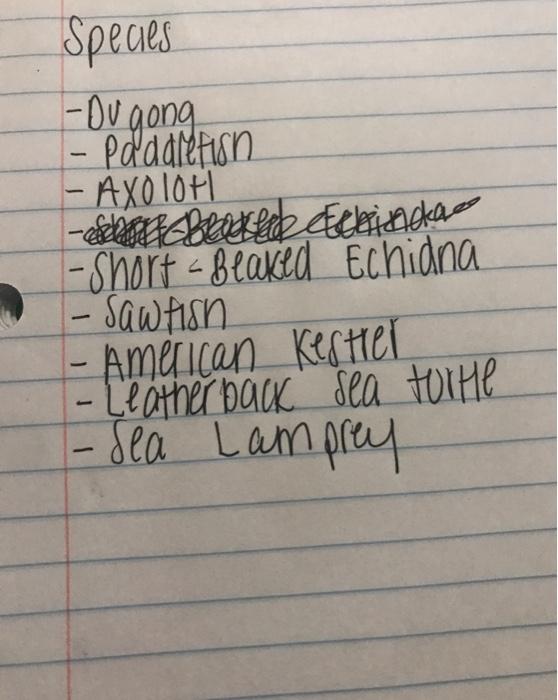 Species
- Dugong
- Paddlefish
- Axolotl
- Short-Beaked Echinda
- Short-Beaked Echidna
- Sawfish
- American Kestrel
- Leatherback Sea turtle
- Sea Lamprey